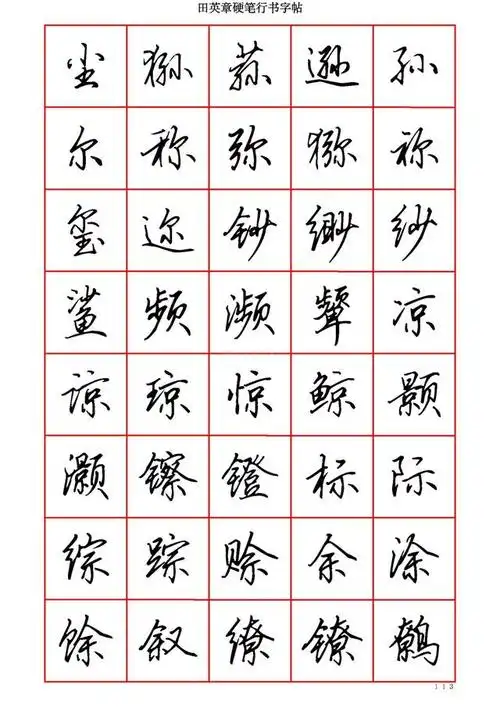 田英章硬笔行书字帖
尘 狲 荪 逊 孙
尔 称 弥 猕 祢
玺 迩 钞 缈 纱
鲨 频 濒 颦 凉
谅 琼 惊 鲸 颢
灏 镲 镫 标 际
综 踪 赊 余 涂
馀 叙 缭 镣 鹩
113